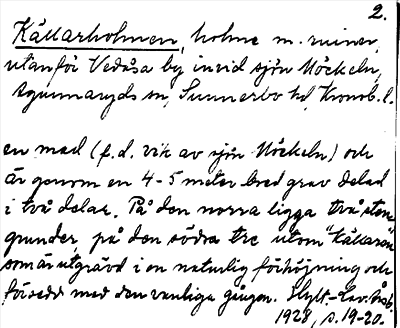 2.
Källarholmen, holme m. ruiner,
utanför Vedåsa by invid sjön Möckeln,
Agunnaryds sn, Sunnerbo hd, Kronob. l.
en mad (f.d. vik av sjön Möckeln) och
är genom en 4-5 meter bred grav delad
i två delar. På den norra ligga två sten
grunder, på den södra tre utom "källaren"
som är utgrävd i en naturlig förhöjning och
försedd med den vanliga gången. Hylt.-Cav. Årsb.
1928, s. 19-20.